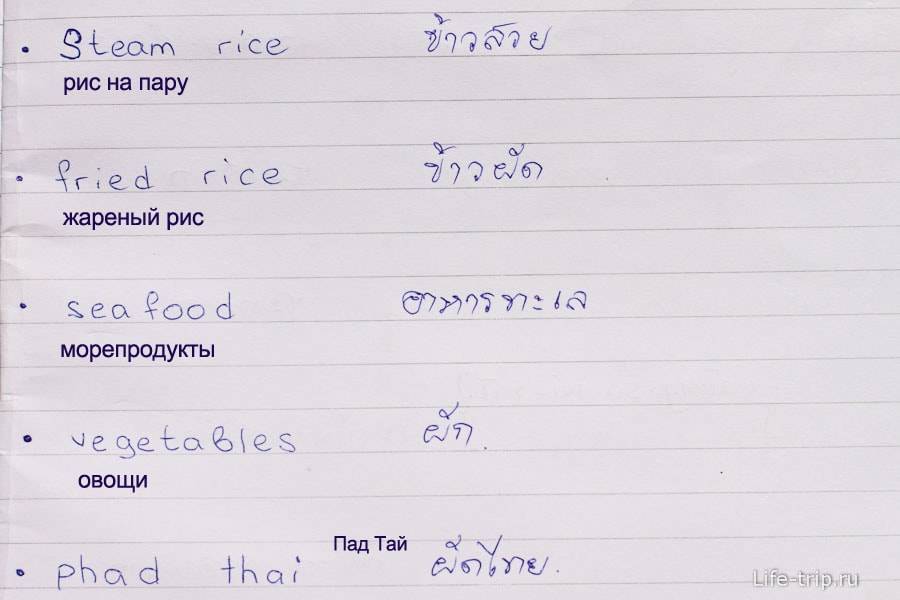 • Steam rice ข้าวสวย
рис на пару
• fried rice ข้าวผัด
жареный рис
• seafood อาหารทะเล
морепродукты
• vegetables ผัก.
овощи
Пад Тай
• phad thai ผัดไทย.
Life-trip.ru